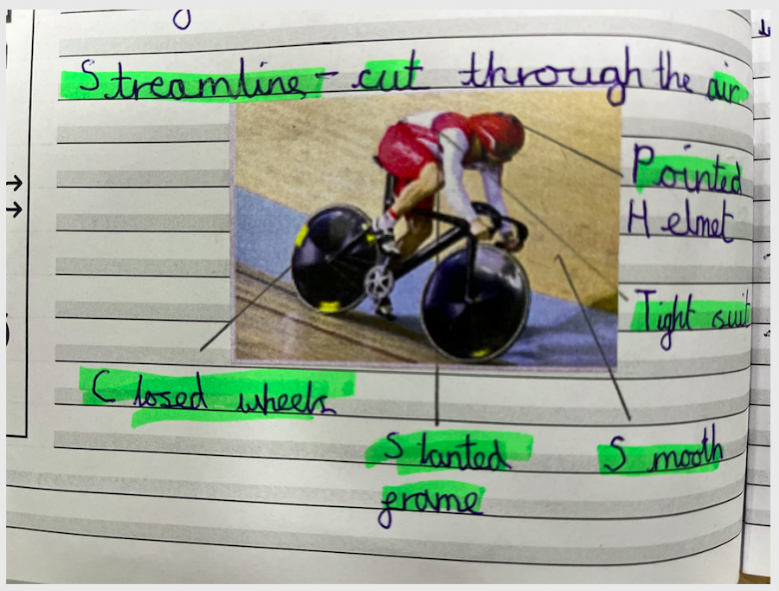 Streamline - cut through the air
Pointed
Helmet
Tight suit
Closed wheels
Slanted
frame
Smooth